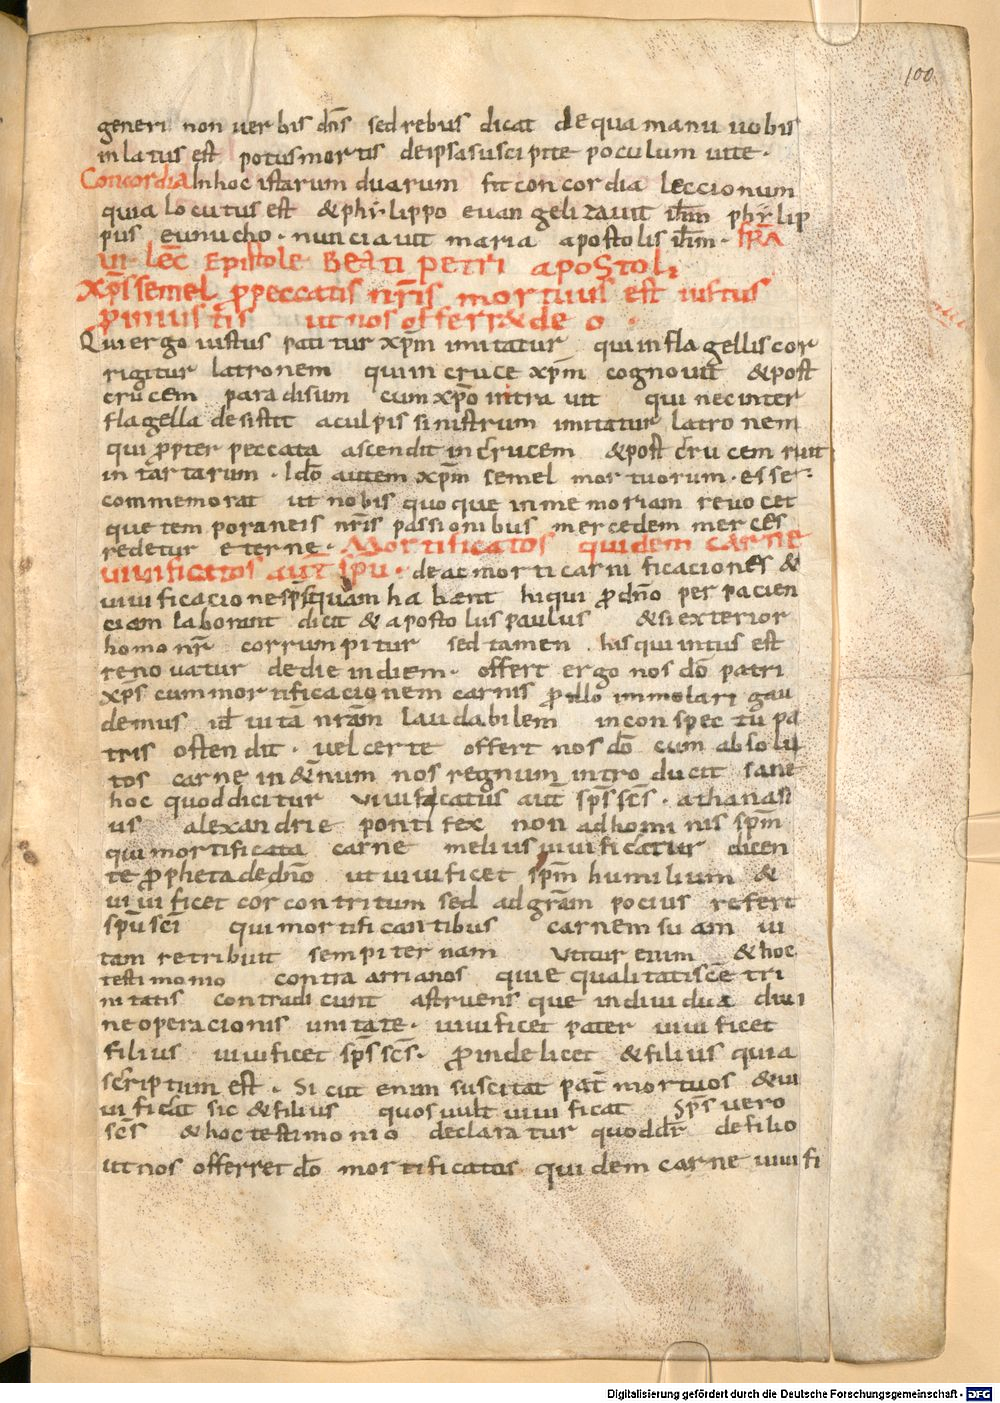 100
generi non uerbis dn̄s sed rebus dicat de qua manu uobis
inlatus est potus mortis de ipsa suscipite poculum uite·
Concordia In hoc istarum duarum fit concordia leccionum
quia locutus est & phylippo euangelizauit ih̄m phylip
pus eunucho· nunciauit maria apostolis ih̄m· FRĀ
VI· LEC̄ Epistole Beati petri apostoli
Xp̄s semel p̄ peccatis nr̄is mortuus est iustus
p̄ iniustis ut nos offerr& deo·
Qui ergo iustus patitur xp̄m imitatur qui in flagellis cor
rigitur latronem qui in cruce xp̄m cognouit & post
crucem paradisum cum xp̄o intrauit qui nec inter
flagella desistit a culpis sinistrum imitatur latronem
qui p̄pter peccata ascendit in crucem & post crucem ruit
in tartarum· Ido autem xp̄m semel mortuorum· esse·
commemorat ut nobis quoque in memoriam reuocet
que temporaneis nr̄is passionibus mercedem merces
redetur eterne· Mortificatos quidem carne
uiuificatos aut sp̄u· de ac morti carni ficaciones &
uiuificacione sp̄s quam habent hi qui p̄ dn̄o per pacien
ciam laborant dicit & apostolus paulus & si exterior
homo nr̄ corrumpitur sed tamen his qui intus est
renouatur de die in diem· offert ergo nos dō patri
xp̄s cum mortificacionem carnis p̄ illo immolari gau
demus id uitā nrām laudabilem in conspectu pa
tris ostendit· uel certe offert nos dō cum absolu
tos carne in &n̄num nos regnum introducit sane
hoc quod dicitur uiuificatus aut̄ sp̄s sc̄s· athanasi
us alexandrie pontifex non ad hominis sp̄m
qui mortificata carne melius uiuificatur dicen
te p̄pheta de dn̄o ut uiuificet sp̄m humilium &
uiuificet cor contritum sed ad grām pocius refert
sp̄u sc̄i qui mortificantibus carnem suam ui
tam retribuit sempiternam Vtitur enim & hoc
testimonio contra arrianos qui equalitati sc̄e tri
nitatis contradicunt astruens que indiuidua diui
ne operacionis unitate· uiuificet pater uiuificet
filius uiuificet sp̄s sc̄s· p̄inde licet & filius quia
scriptum est· Sicut enim suscitat pat̄ mortuos & ui
uificat sic & filius quos uult uiuificat Sp̄s uero
sc̄s & hoc testimonio declaratur quod dr̄ de filio
ut nos offerret dō mortificatos quidem carne uiuifi
Digitalisierung gefördert durch die Deutsche Forschungsgemeinschaft - DFG